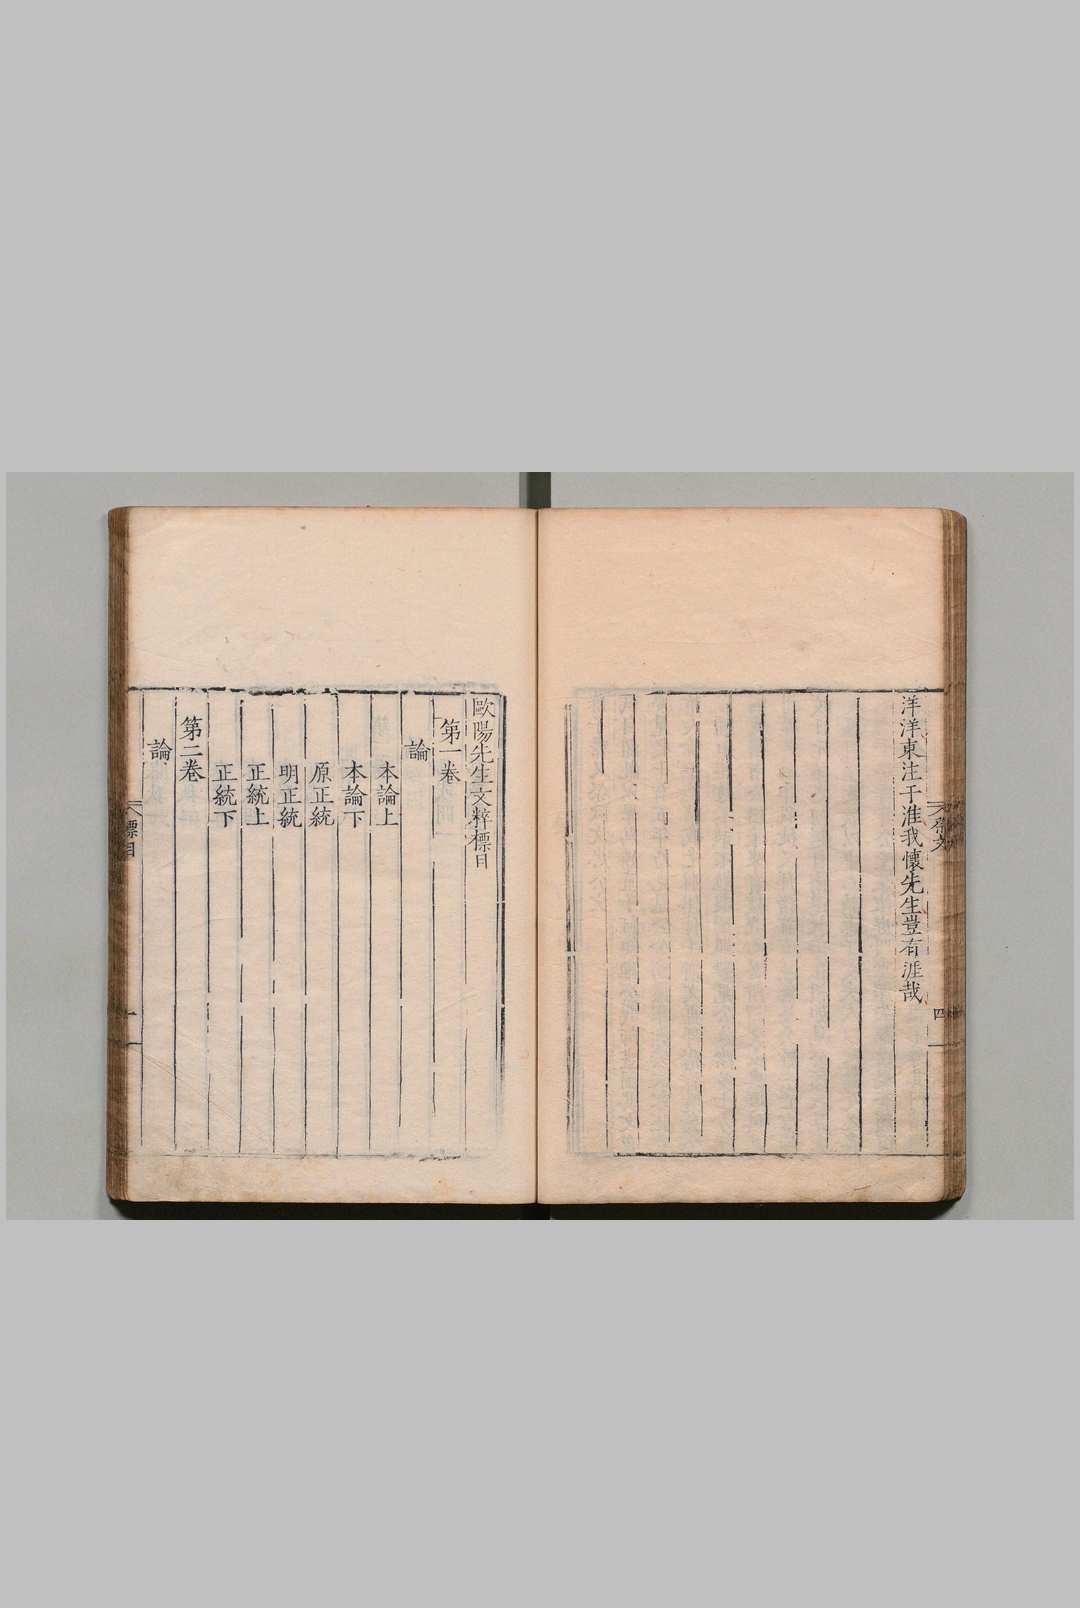 洋洋東注于淮我懷先生豈有涯哉
祭文
四
歐陽先生文粹標目
第一卷
論
本論上
本論下
原正統
明正統
正統上
正統下
第二卷
論
標目
一